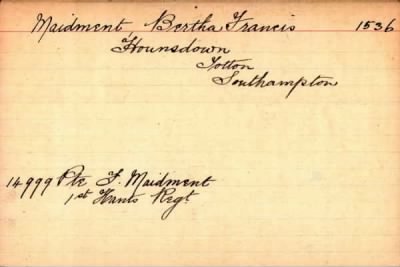 Maidment Bertha Francis 1536
Hounsdown
Totton
Southampton
14999 Pte F. Maidment
1st Hants Regt